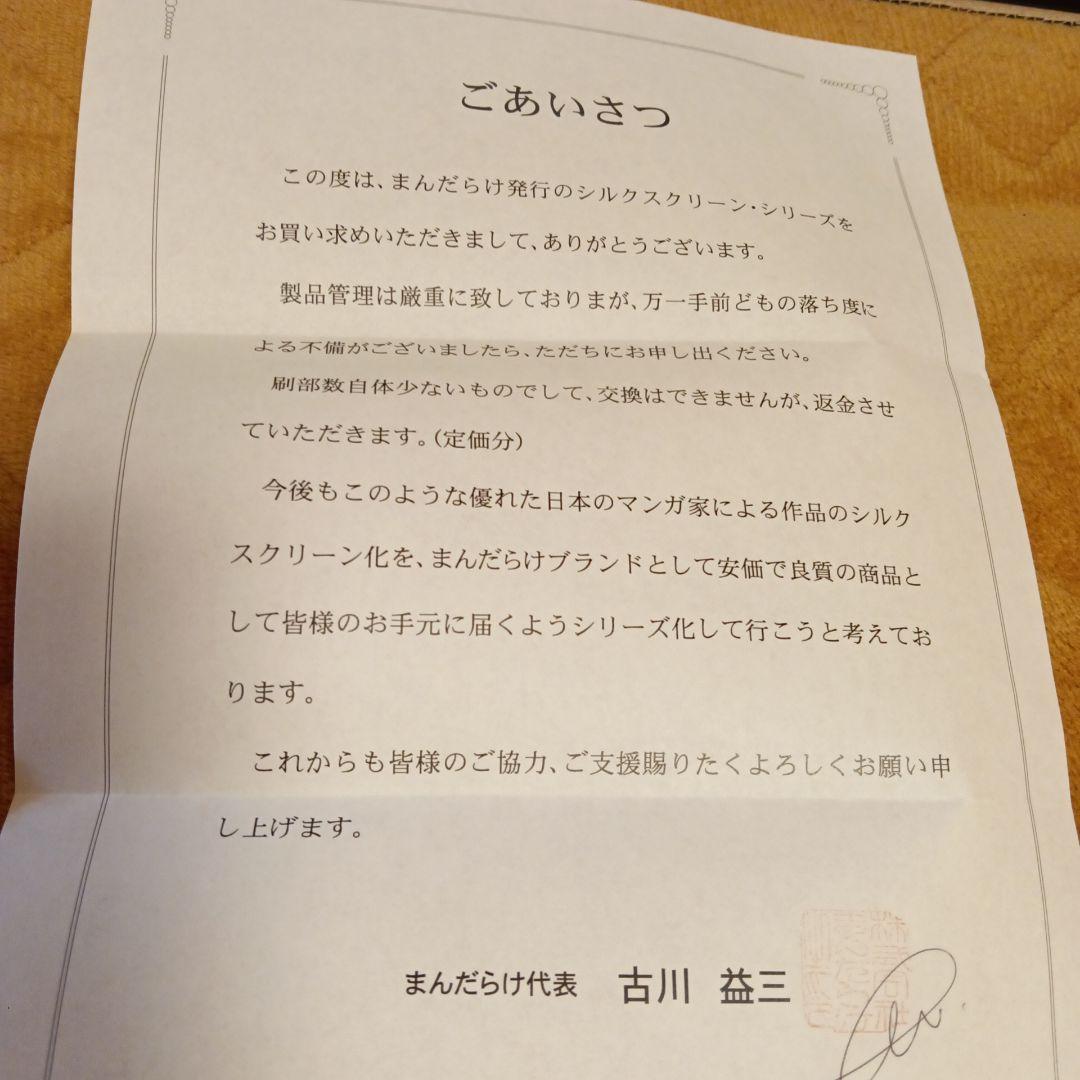 ごあいさつ
この度は、まんだらけ発行のシルクスクリーン・シリーズを
お買い求めいただきまして、ありがとうございます。
製品管理は厳重に致しておりまが、万一手前どもの落ち度に
よる不備がございましたら、ただちにお申し出ください。
刷部数自体少ないものでして、交換はできませんが、返金させ
ていただきます。（定価分）
今後もこのような優れた日本のマンガ家による作品のシルク
スクリーン化を、まんだらけブランドとして安価で良質の商品と
して皆様のお手元に届くようシリーズ化して行こうと考えてお
ります。
これからも皆様のご協力、ご支援賜りたくよろしくお願い申
し上げます。
まんだらけ代表　古川　益三